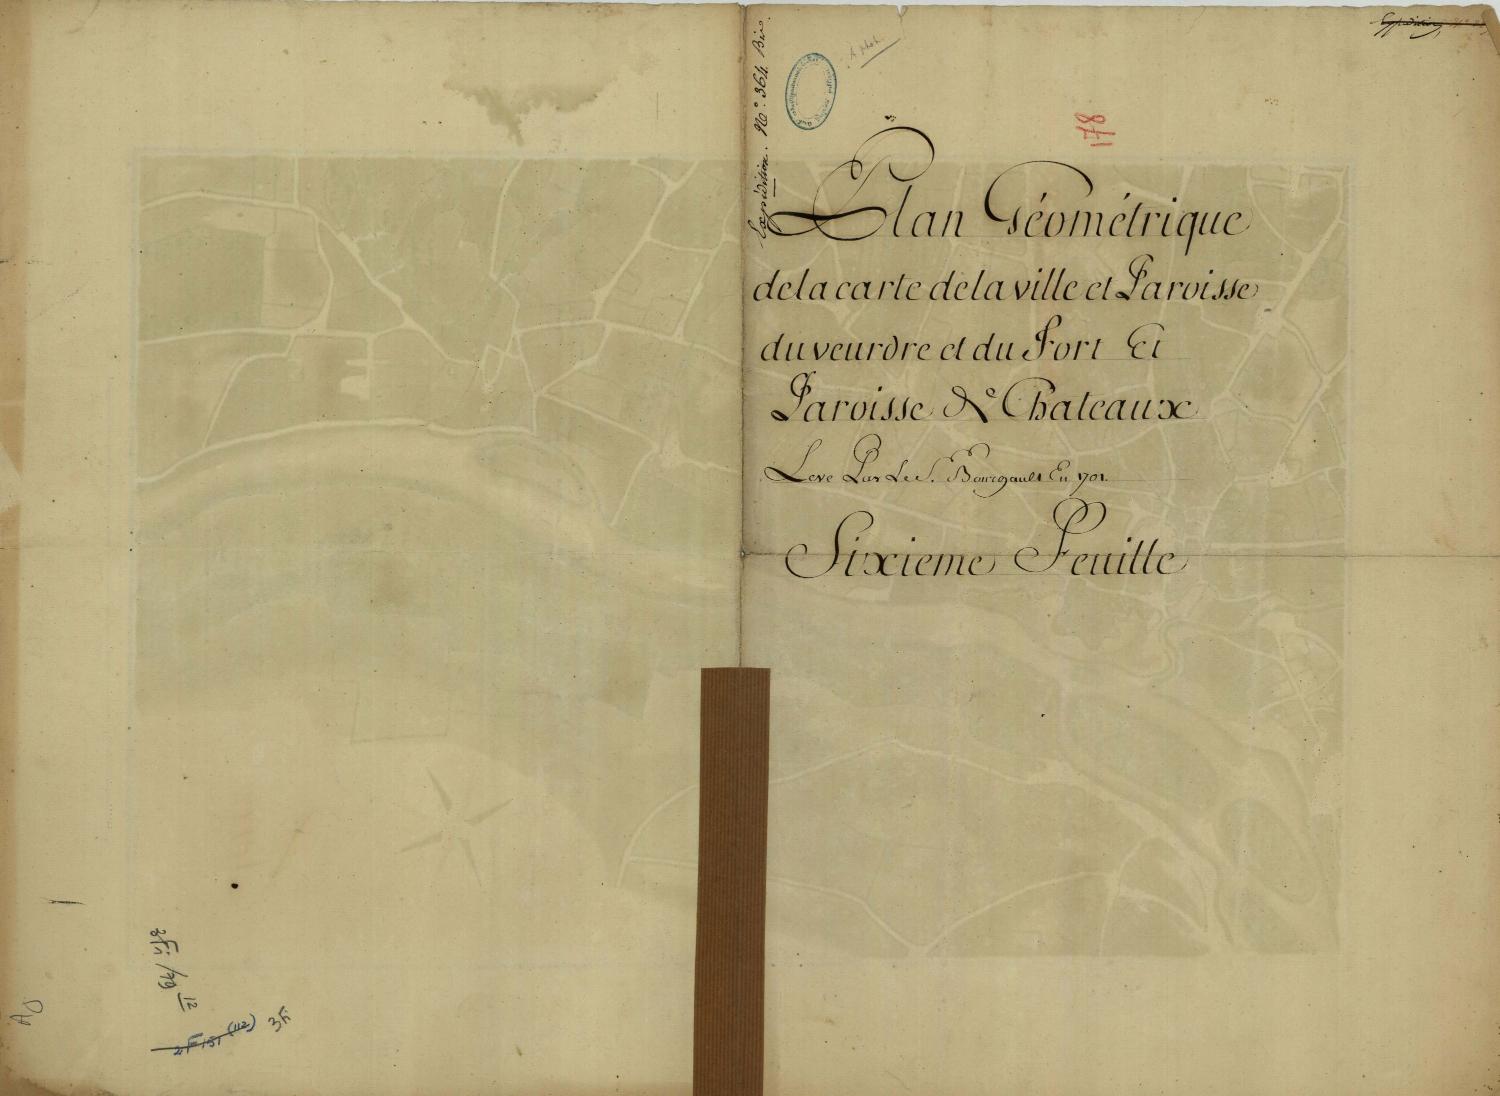 Expédition. N.° 364 Bis.
178
Plan Géométrique
de la carte de la ville et Paroisse
du veurdre et du Port Et
Paroisse De Chateaux
Levé Par Le S. Bourgault En 1701.
Sixieme Feuille
12
2F 151 (112)
3Fi
AD